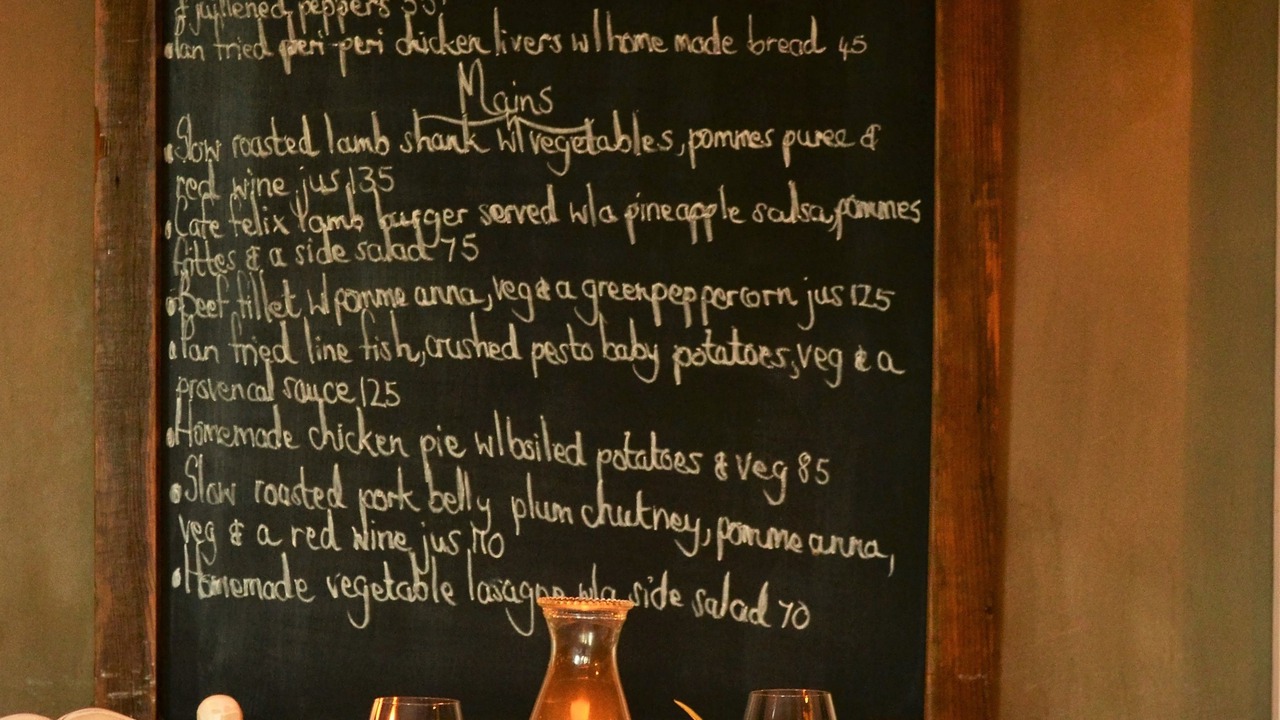 & julliened peppers 55.
• Pan fried peri-peri chicken livers w/home made bread 45
Mains
• Slow roasted lamb shank w/vegetables, pommes puree &
red wine jus 135
• Cafe felix lamb burger served w/a pineapple salsa, pommes
frittes & a side salad 75
• Beef fillet w/pomme anna, veg & a greenpeppercorn jus 125
• Pan fried line fish, crushed pesto baby potatoes, veg & a
provencal sauce 125
• Homemade chicken pie w/boiled potatoes & veg 85
• Slow roasted pork belly plum chutney, pomme anna,
veg & a red wine jus 110
• Homemade vegetable lasagne w/a side salad 70